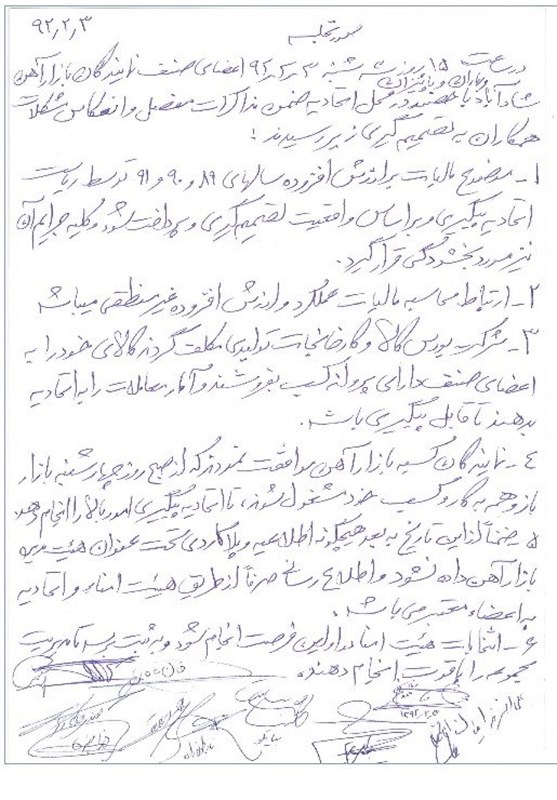 ۹۲,۲,۳
صورتجلسه
در ساعت ۱۵ روز سه شنبه ۹۲/۲/۳ اعضای صنف نمایندگان بازار آهن
شادآباد با حضور در محل اتحادیه ضمن مذاکرات مفصل و انعکاس مشکلات
همکاران به تصمیم گیری زیر رسیدند :
۱- موضوع مالیات بر ارزش افزوده سالهای ۸۹ و ۹۰ و ۹۱ توسط ریاست
اتحادیه پیگیری و بر اساس واقعیت تصمیم گیری و پرداخت شود و کلیه جرایم آن
نیز مورد بخشودگی قرار گیرد.
۲- ارتباط محاسبه مالیات عملکرد و ارزش افزوده غیر منطقی میباشد
۳- شرکت بورس کالا و کارخانجات تولیدی مکلف گردند کالای خود را به
اعضای صنف دارای پروانه کسب بفروشند و آمار معاملات را به اتحادیه
بدهند تا قابل پیگیری باشد.
۴- نمایندگان کسبه بازار آهن موافقت نمودند که از صبح روز چهارشنبه بازار
باز و همه به کار و کسب خود مشغول شوند، تا اتحادیه پیگیری امور بالا را انجام دهد.
۵ ضمناً از این تاریخ به بعد هیچگونه اطلاعیه و پلاکاردی تحت عنوان هیئت مدیره
بازار آهن داده نشود و اطلاع رسانی صرفاً از طریق هیئت امناء و اتحادیه
به اعضاء معتبر می باشد.
۶- انتخابات هیئت امنا در اولین فرصت انجام شود و به ثبت برسد تا مدیریت
مجموعه را با قدرت انجام دهند.